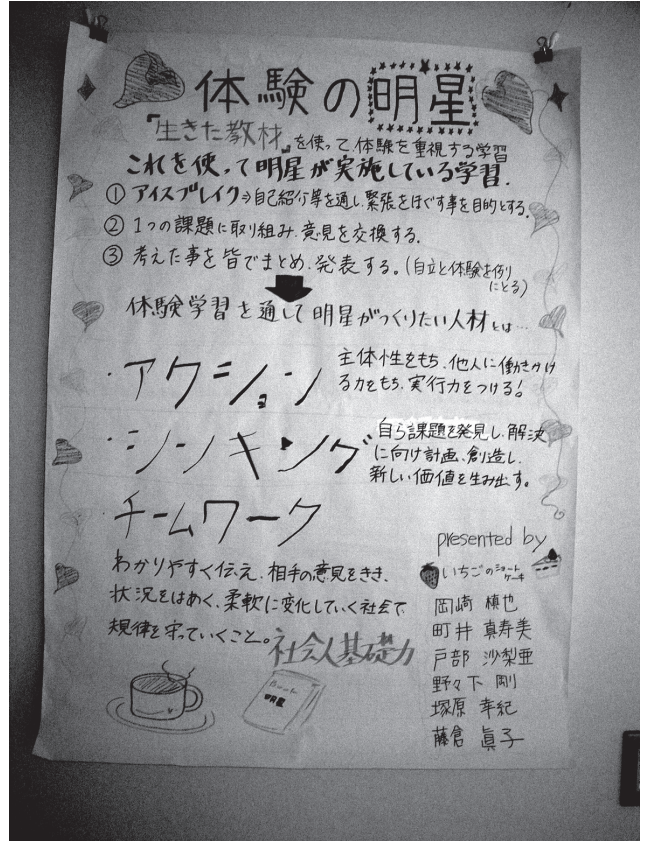 体験の明星
『生きた教材』を使って体験を重視する学習
これを使って明星が実施している学習.
① アイスブレイク⇒自己紹介等を通し、緊張をほぐす事を目的とする。
② 1つの課題に取り組み、意見を交換する。
③ 考えた事を皆でまとめ、発表する。(自立と体験を例りにとる)
体験学習を通して明星がつくりたい人材とは…
・アクション
主体性をもち、他人に働きかけ
る力をもち、実行力をつける!
・シンキング
自ら課題を発見し、解決
に向け計画、創造し、
新しい価値を生み出す。
チームワーク
わかりやすく伝え、相手の意見をきき、
状況をはあく、柔軟に変化していく社会で
規律を守っていくこと。
社会人基礎力
明星
presented by
いちごのショートケーキ
岡崎 槙也
町井 真寿美
戸部 沙梨亜
野々下 剛
塚原 幸紀
藤倉 眞子